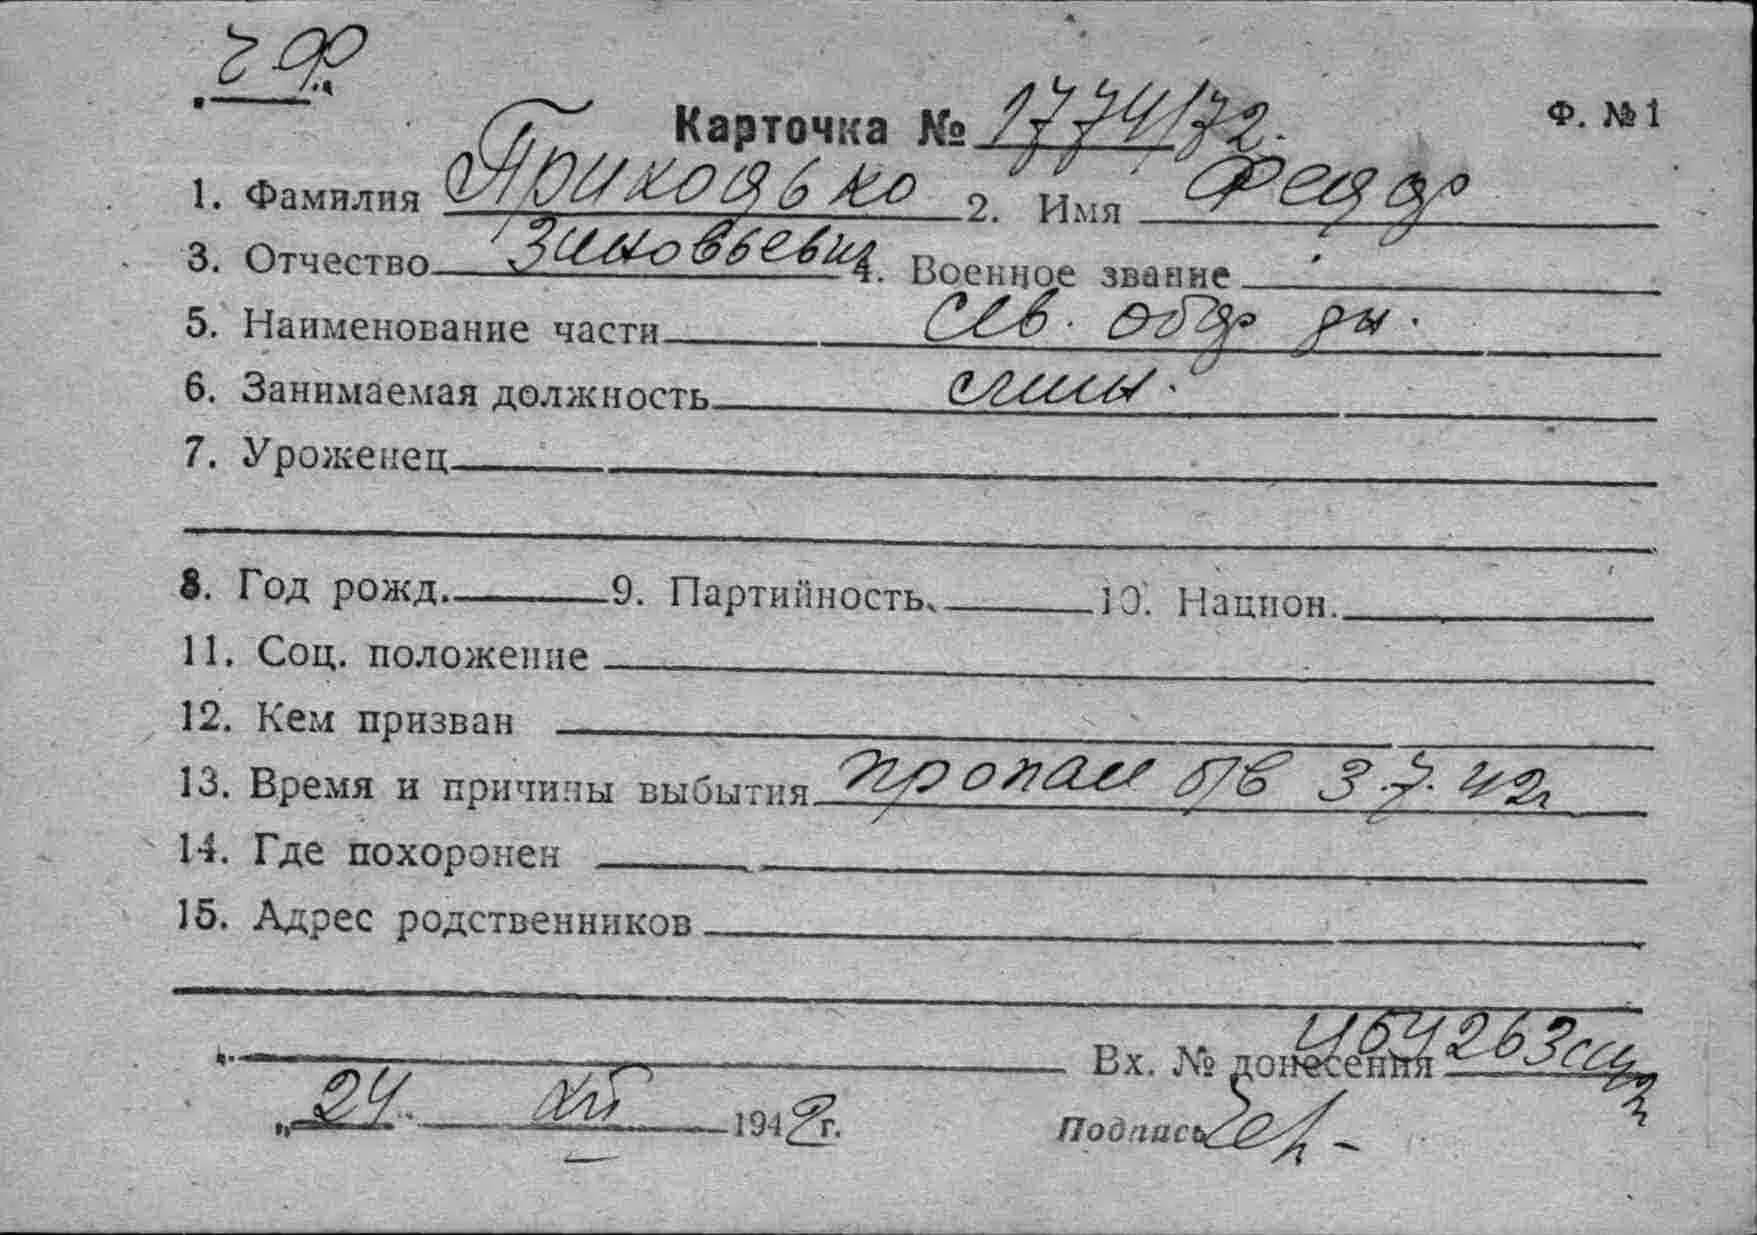 ЧФ
Карточка № 1774/72. Ф. № 1
1. Фамилия Приходько 2. Имя Федор
3. Отчество Зиновьевич 4. Военное звание
5. Наименование части Сев. обор. рн.
6. Занимаемая должность
7. Уроженец
8. Год рожд. 9. Партийность 10. Национ.
11. Соц. положение
12. Кем призван
13. Время и причины выбытия пропал б/в 3.7.42г
14. Где похоронен
15. Адрес родственников
Вх. № донесения
„24" XII 1942 г. Подпись